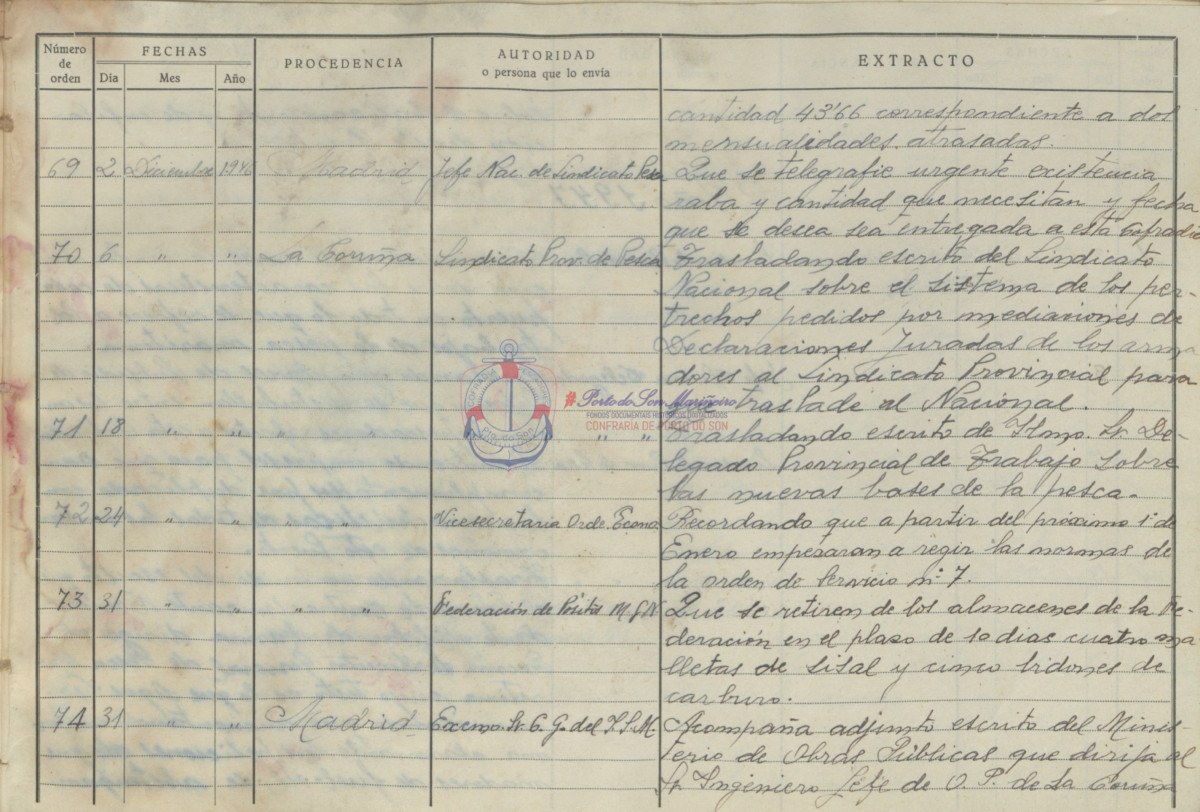 Número de orden
FECHAS
Día Mes Año
PROCEDENCIA
AUTORIDAD
o persona que lo envía
EXTRACTO
cantidad 43'66 correspondiente a dos
mensualidades atrasadas.
69 2 Diciembre 1946 Madrid Jefe Nac. de Sindicato Pesca Que se telegrafie urgente existencia
raba y cantidad que necesitan y fecha
que se desea sea entregada a esta Cofradia
70 6 " " La Coruña Sindicato Prov. de Pesca Trasladando escrito del Sindicato
Nacional sobre el sistema de los per-
trechos pedidos por mediaciones de
Declaraciones Juradas de los arma
dores al Sindicato Provincial para
traslade al Nacional.
71 18 " " " " " " Trasladando escrito de Ilmo. Sr. De-
legado Provincial de Trabajo sobre
las nuevas bases de la pesca.
72 24 " " " " Vicesecretaria Orde. Econa Recordando que a partir del próximo 1º de
Enero empesaran a regir las normas de
la orden de Servicio nº 7.
73 31 " " " " Federación de Pósitos M. Que se retiren de los almacenes de la Fe-
deración en el plaso de 10 dias cuatro ma
lletas de sisal y cinco bidones de
carburo.
74 31 " " Madrid Excmo. Sr. C. G. del I.S.M. Acompaña adjunto escrito del Minis-
terio de Obras Públicas que dirija al
Sr. Ingeniero Jefe de O. P. de La Coruña
#Porto do Son Mariñeiro
FONDOS DOCUMENTAIS HISTÓRICOS DIGITALIZADOS
CONFRARÍA DE PORTO DO SON